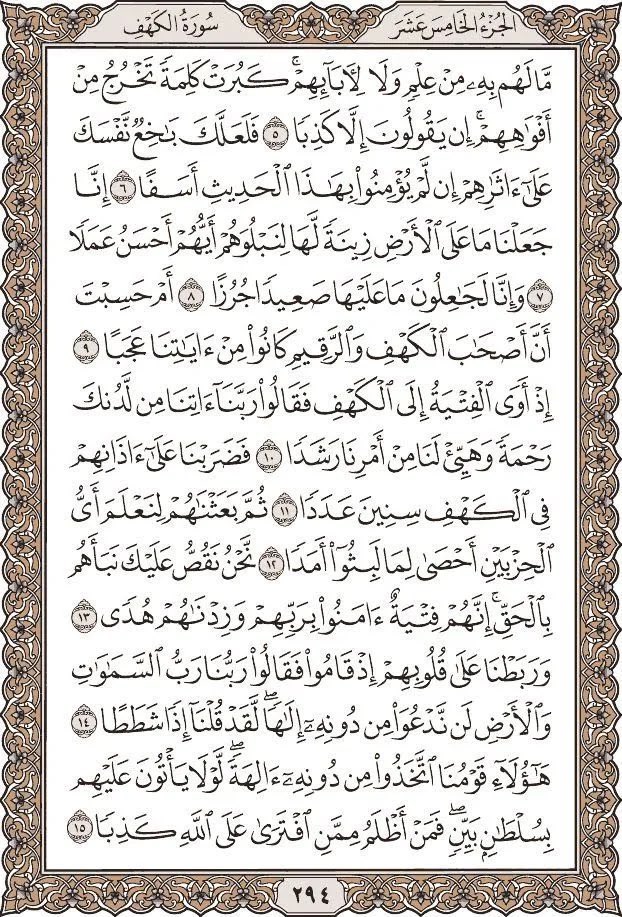 الجزء الخامس عشر
سورة الكهف
مَّا لَهُم بِهِۦ مِنْ عِلْمٍ وَلَا لِأٓبَآئِهِمْ ۚ كَبُرَتْ كَلِمَةً تَخْرُجُ مِنْ
أَفْوَٰهِهِمْ ۚ إِن يَقُولُونَ إِلَّا كَذِبًا ٥ فَلَعَلَّكَ بَٰخِعٌ نَّفْسَكَ
عَلَىٰٓ ءَاثَٰرِهِمْ إِن لَّمْ يُؤْمِنُوا۟ بِهَٰذَا ٱلْحَدِيثِ أَسَفًا ٦ إِنَّا
جَعَلْنَا مَا عَلَى ٱلْأَرْضِ زِينَةً لَّهَا لِنَبْلُوَهُمْ أَيُّهُمْ أَحْسَنُ عَمَلًا
٧ وَإِنَّا لَجَٰعِلُونَ مَا عَلَيْهَا صَعِيدًا جُرُزًا ٨ أَمْ حَسِبْتَ
أَنَّ أَصْحَٰبَ ٱلْكَهْفِ وَٱلرَّقِيمِ كَانُوا۟ مِنْ ءَايَٰتِنَا عَجَبًا ٩
إِذْ أَوَى ٱلْفِتْيَةُ إِلَى ٱلْكَهْفِ فَقَالُوا۟ رَبَّنَآ ءَاتِنَا مِن لَّدُنكَ
رَحْمَةً وَهَيِّئْ لَنَا مِنْ أَمْرِنَا رَشَدًا ١٠ فَضَرَبْنَا عَلَىٰٓ ءَاذَانِهِمْ
فِى ٱلْكَهْفِ سِنِينَ عَدَدًا ١١ ثُمَّ بَعَثْنَٰهُمْ لِنَعْلَمَ أَىُّ
ٱلْحِزْبَيْنِ أَحْصَىٰ لِمَا لَبِثُوٓا۟ أَمَدًا ١٢ نَّحْنُ نَقُصُّ عَلَيْكَ نَبَأَهُم
بِٱلْحَقِّ ۚ إِنَّهُمْ فِتْيَةٌ ءَامَنُوا۟ بِرَبِّهِمْ وَزِدْنَٰهُمْ هُدًى ١٣
وَرَبَطْنَا عَلَىٰ قُلُوبِهِمْ إِذْ قَامُوا۟ فَقَالُوا۟ رَبُّنَا رَبُّ ٱلسَّمَٰوَٰتِ
وَٱلْأَرْضِ لَن نَّدْعُوَا۟ مِن دُونِهِۦٓ إِلَٰهًا ۖ لَّقَدْ قُلْنَآ إِذًا شَطَطًا ١٤
هَٰٓؤُلَآءِ قَوْمُنَا ٱتَّخَذُوا۟ مِن دُونِهِۦٓ ءَالِهَةً ۖ لَّوْلَا يَأْتُونَ عَلَيْهِم
بِسُلْطَٰنٍۭ بَيِّنٍ ۖ فَمَنْ أَظْلَمُ مِمَّنِ ٱفْتَرَىٰ عَلَى ٱللَّهِ كَذِبًا ١٥
٢٩٤